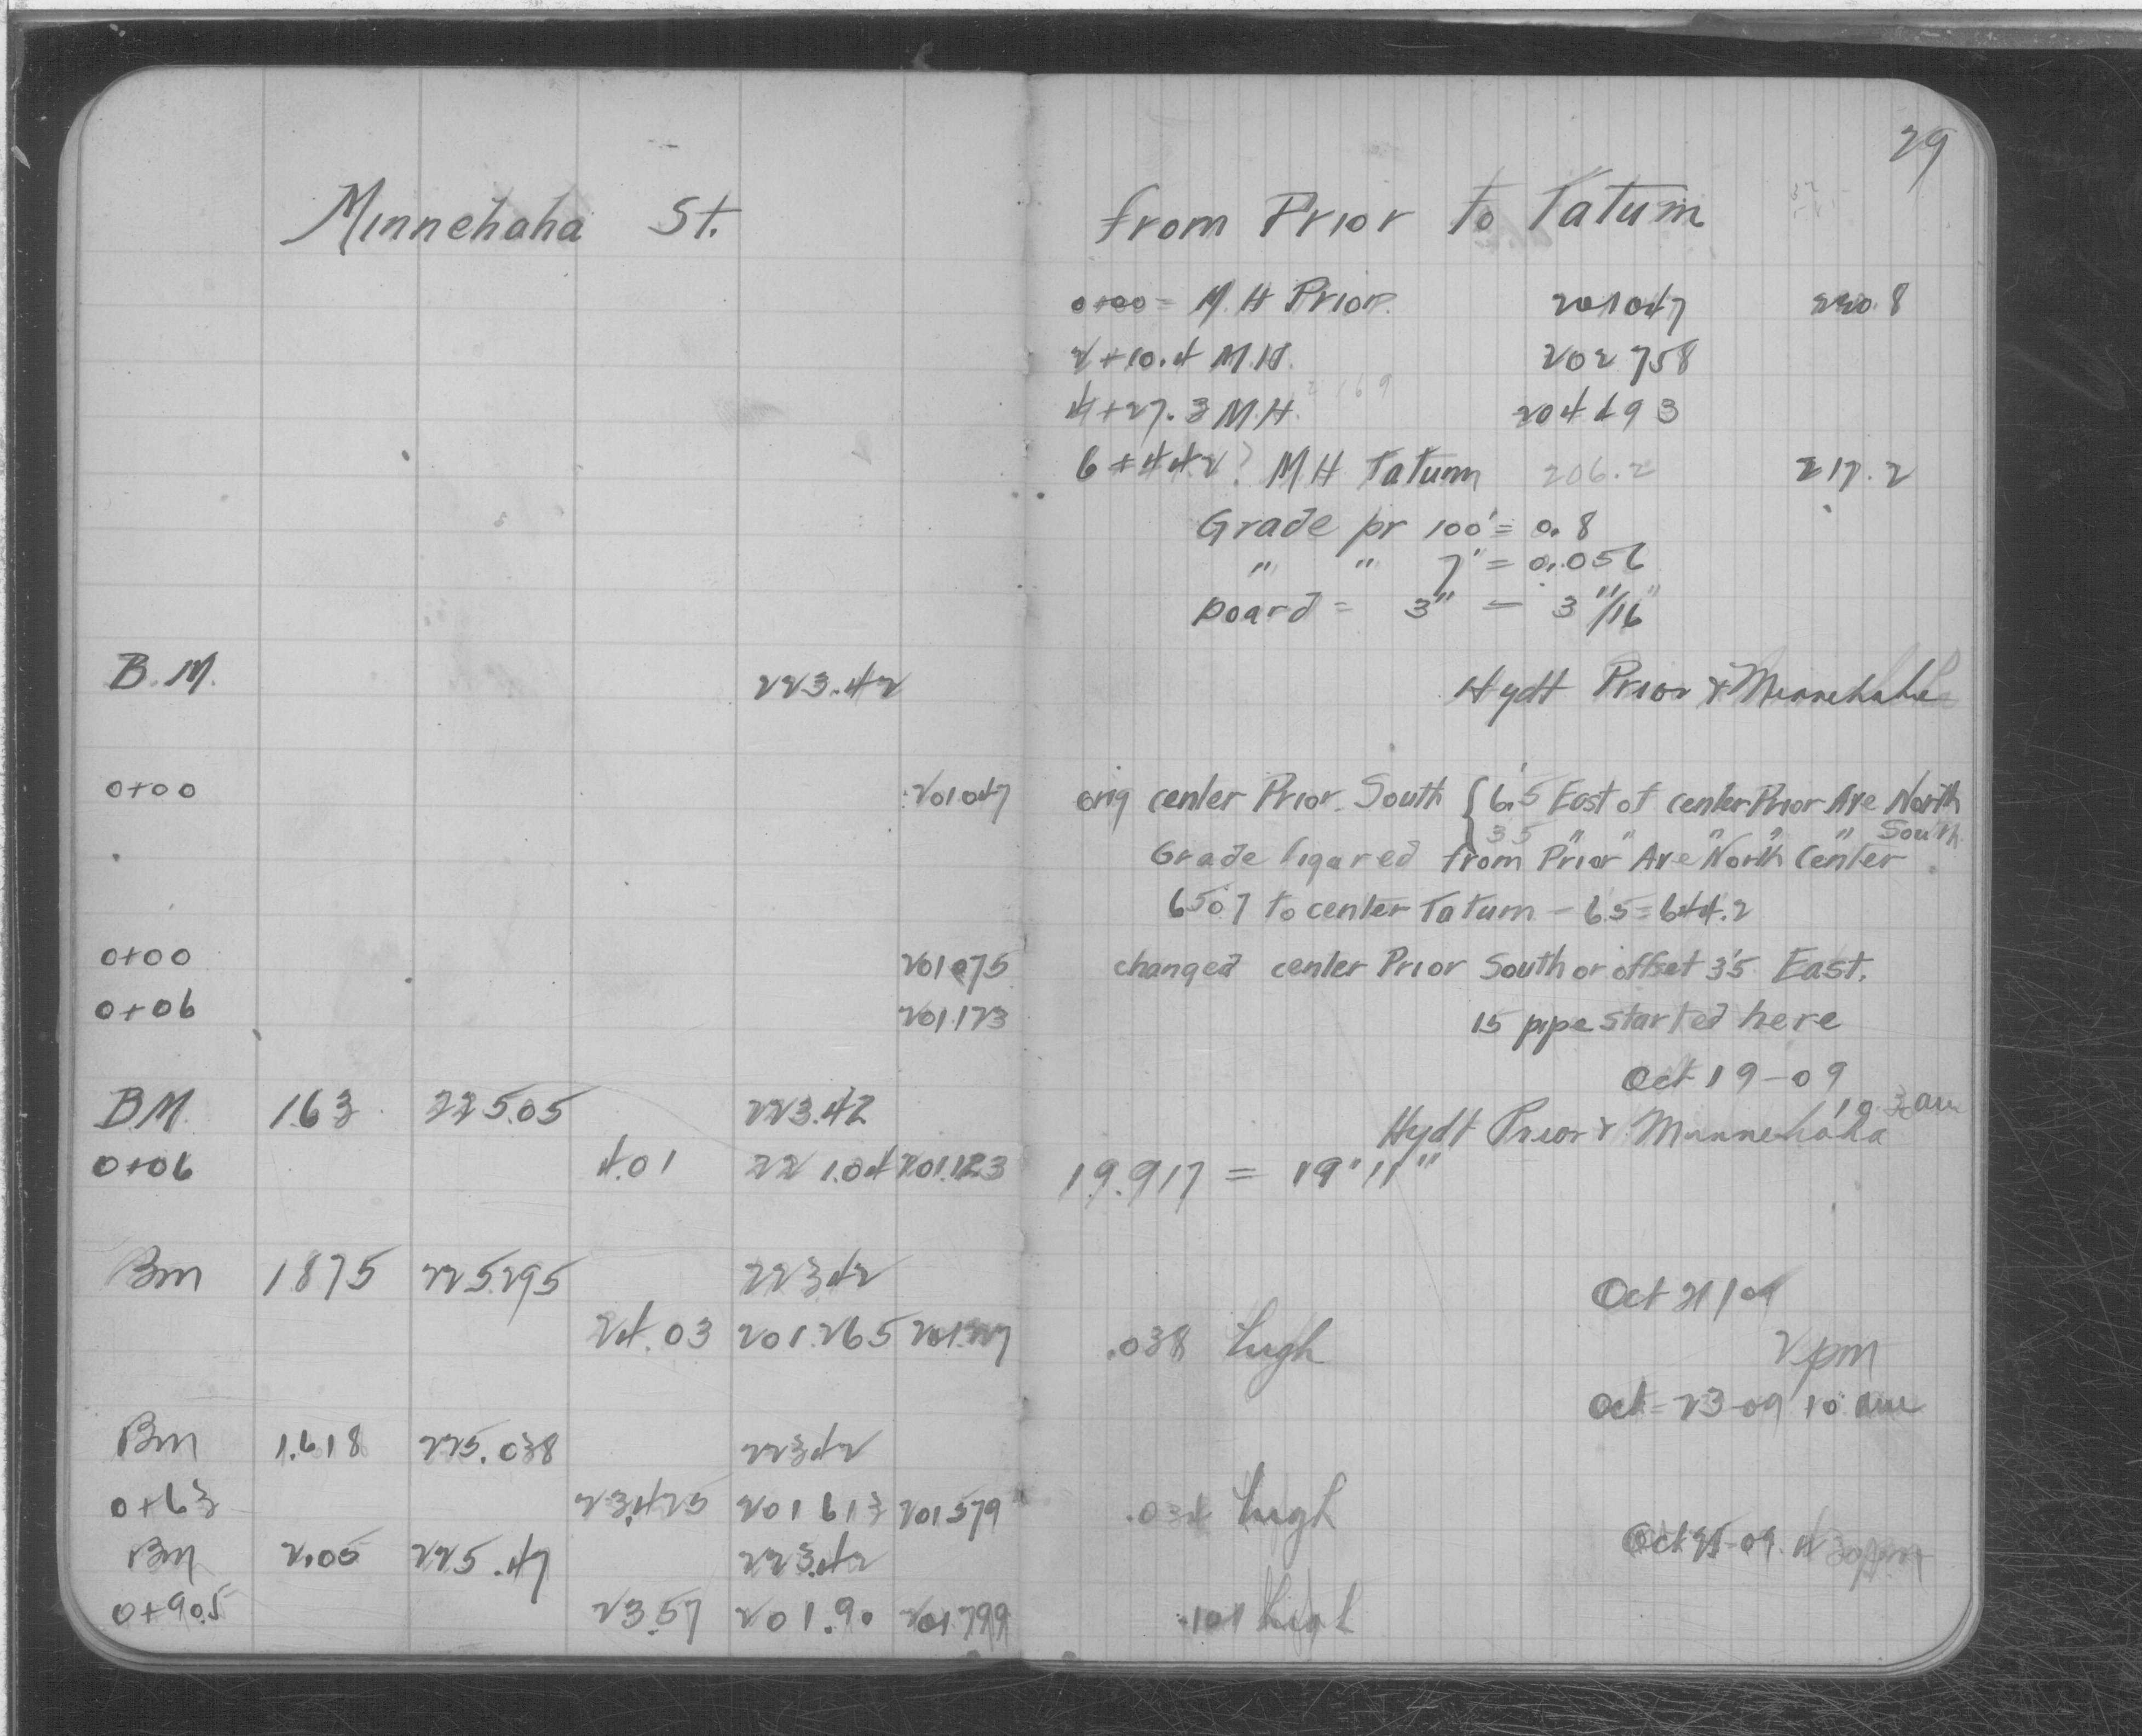 29
Minnehaha St. from Prior to Tatum
0+00 = M.H Prior. 201047 220.8
2+10.4 M.H. 202758
4+27.3 M.H. 204493
6+44.2? M H Tatum 206.2 217.2
Grade pr 100' = 0.8
" " 7' = 0.056
Board = 3" — 3"/16"
B.M. 223.42 Hydt Prior & Minnehaha
0+00 201047 orig center Prior South { 6.5 East of center Prior Ave North
35 " " " " " South
Grade figured from Prior Ave North Center
6507 to center Tatum - 6.5 = 644.2
0+00 201075 changed center Prior South or offset 35 East.
0+06 201.123 15 pipe started here
Oct 19-09
BM 1.63 225.05 223.42 Hydt Prior & Minnehaha
0+06 4.01 221.04 201.123 19.917 = 19' 11"
Bm 1875 225.295 223.42 Oct 21/09
24.03 201.265 201.227 .038 high 2 pm
Oct-23-09 10 am
Bm 1.618 225.038 22342
0+63 23.425 201613 201579 .034 high
Bm 2.05 225.47 223.42
0+90.5 23.57 201.90 201799 .101 high